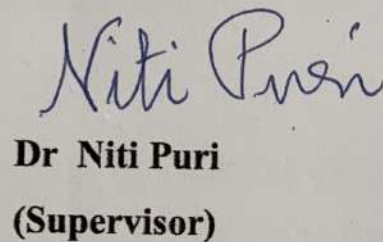 Niti Puri
Dr Niti Puri
(Supervisor)